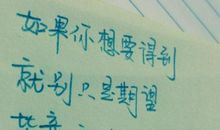 如果你想要得到
就别只是期望
毕竟